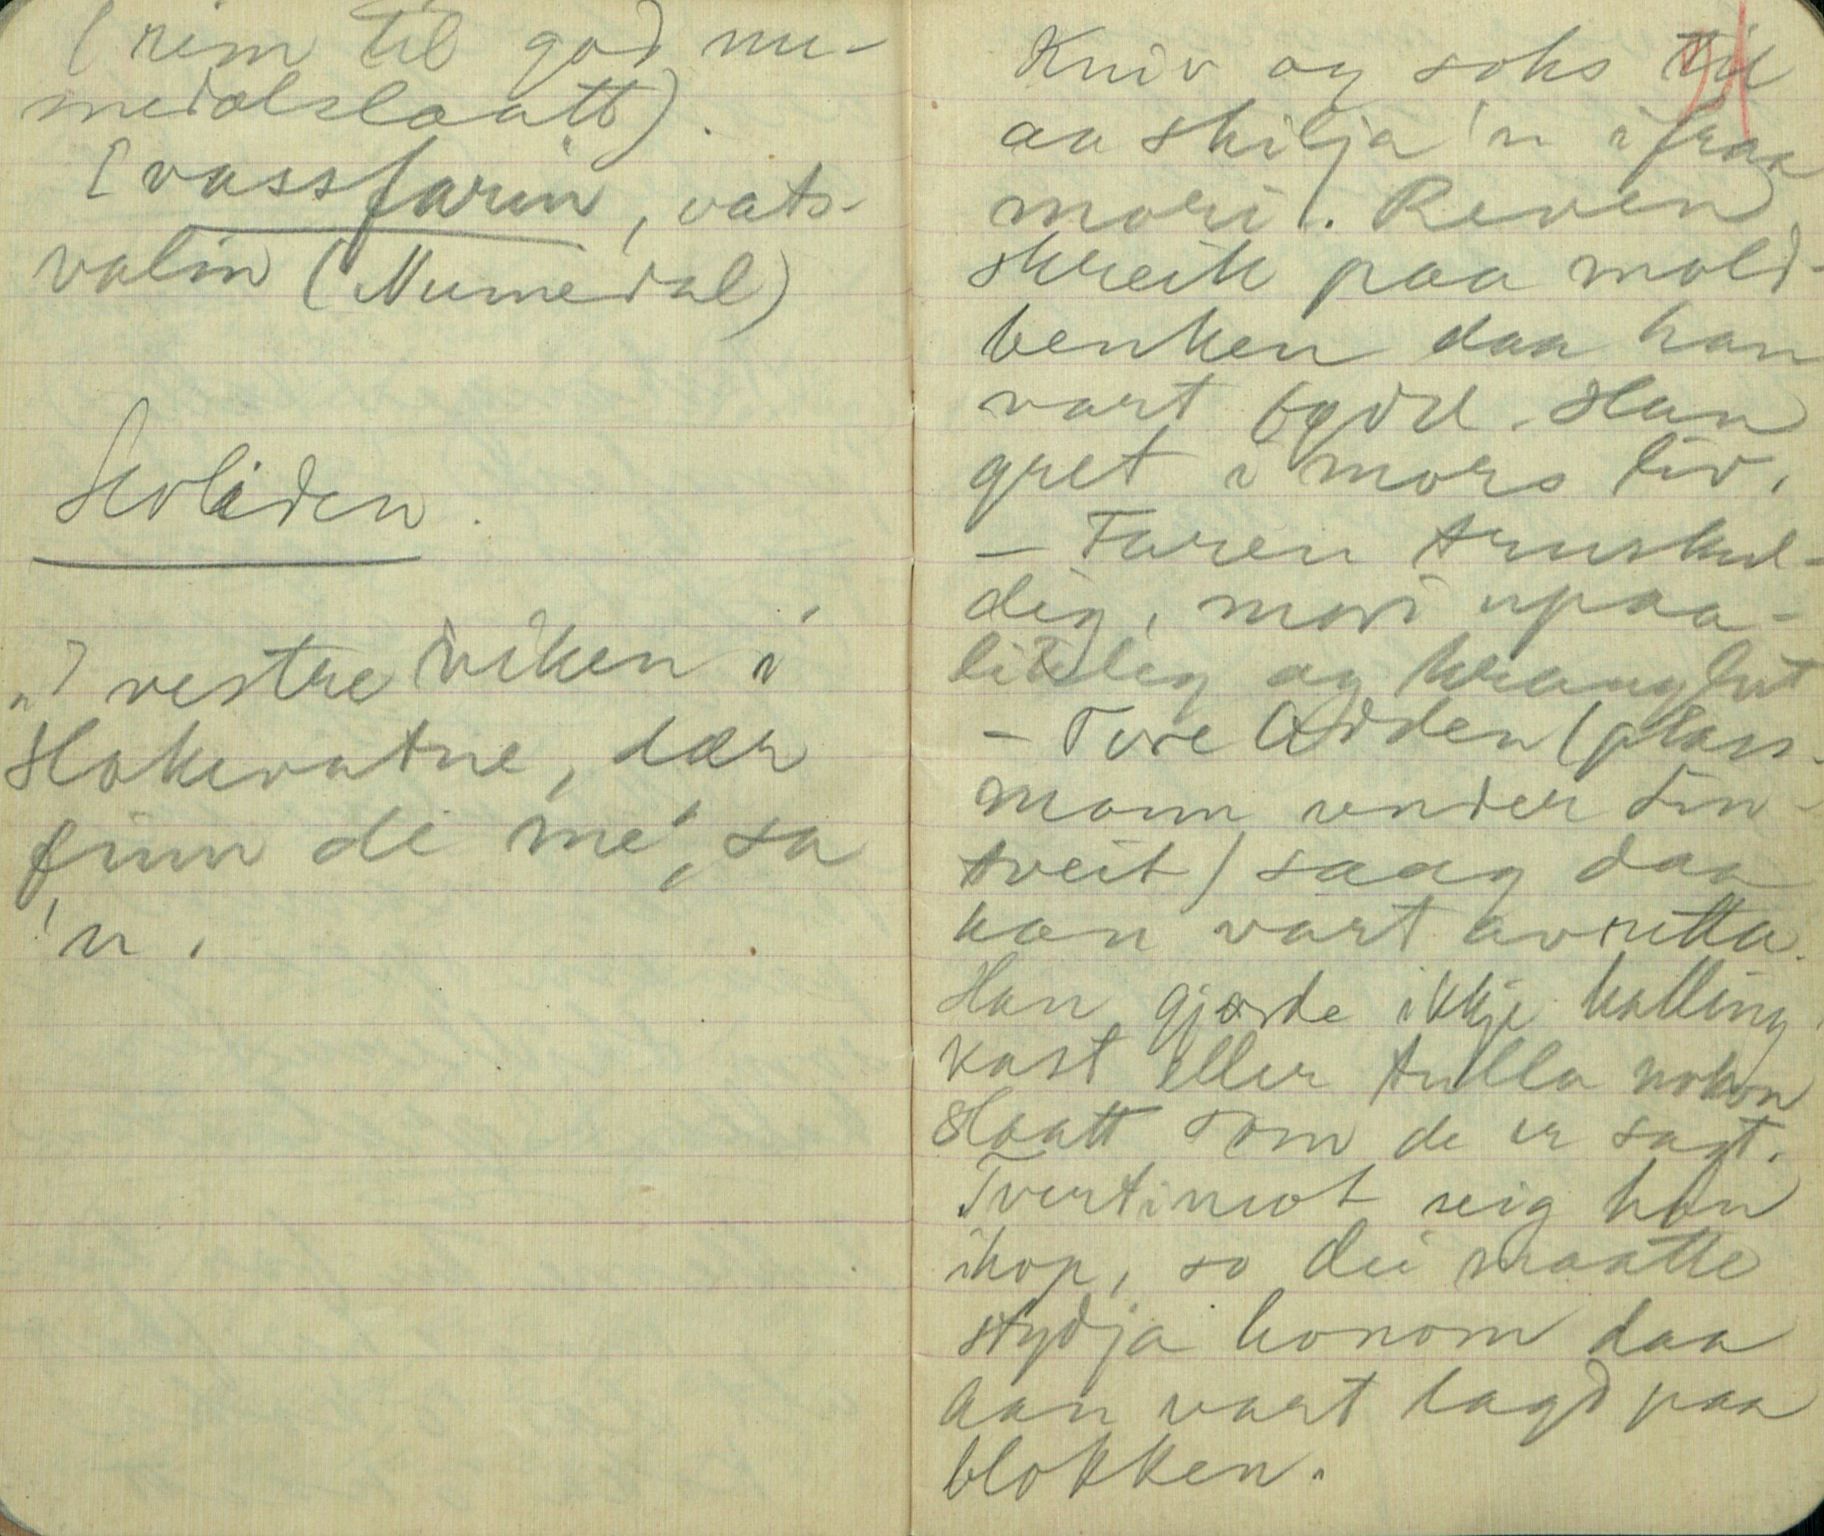 (rim til god nu-
medalslaatt).
I vassfarin, vats-
valin (Numedal)
Skoliden.
"I vestre viken i
Hokevatne, dær
finn de me", sa
'n.
Kniv og soks til
aa skilja 'n ifraa
mori. Reven
skreik paa mold-
benken daa han
vart fødd. Han
gret i mors liv.
- Faren truskul-
dig, mori upaa-
litsleg og kranglut
- Tore Odden (plass-
mann under Tin-
tveit) saag daa
han vart avretta.
Han gjorde ikkje halling-
kast eller tulla nokon
slaatt som de er sagt.
Tvertimot seig han
ihop, so dei maatte
stydja honom daa
han vart lagd paa
blokken.